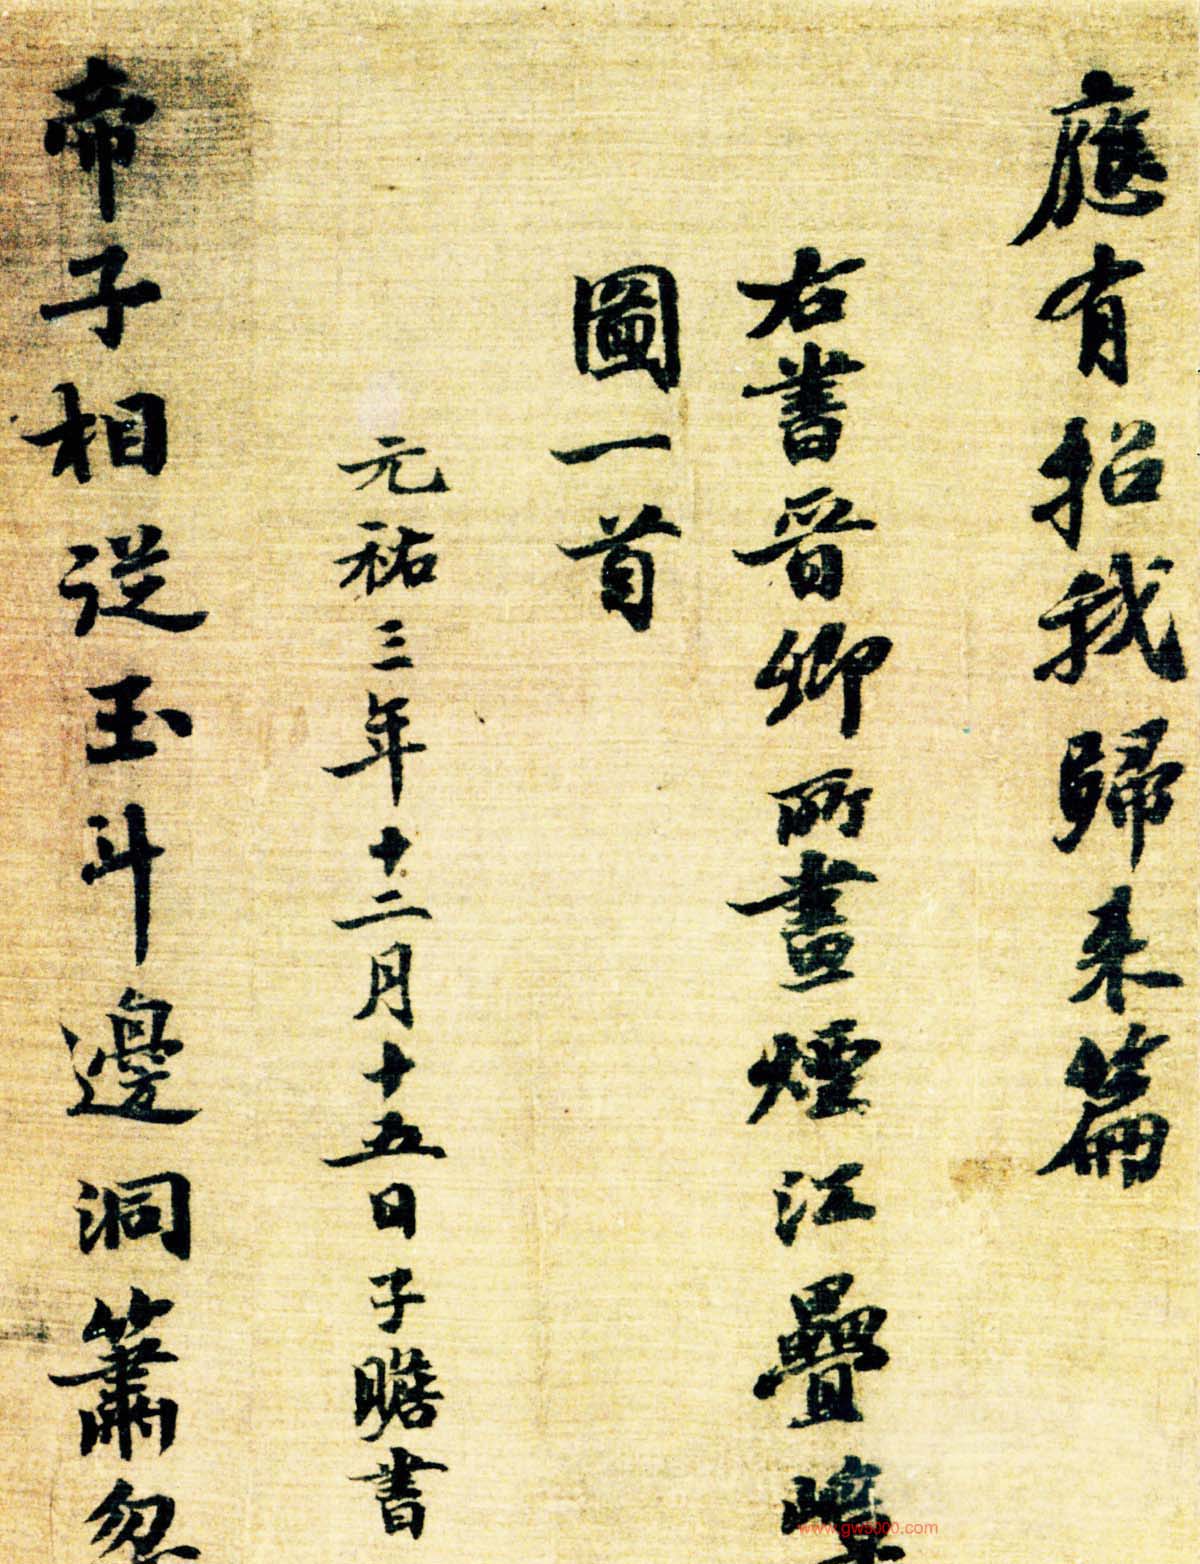 應有招我歸来篇
右書晉卿所畫煙江疊嶂
圖一首
元祐三年十二月十五日子瞻書
帝子相從玉斗邊洞簫忽
www.gw5000.com